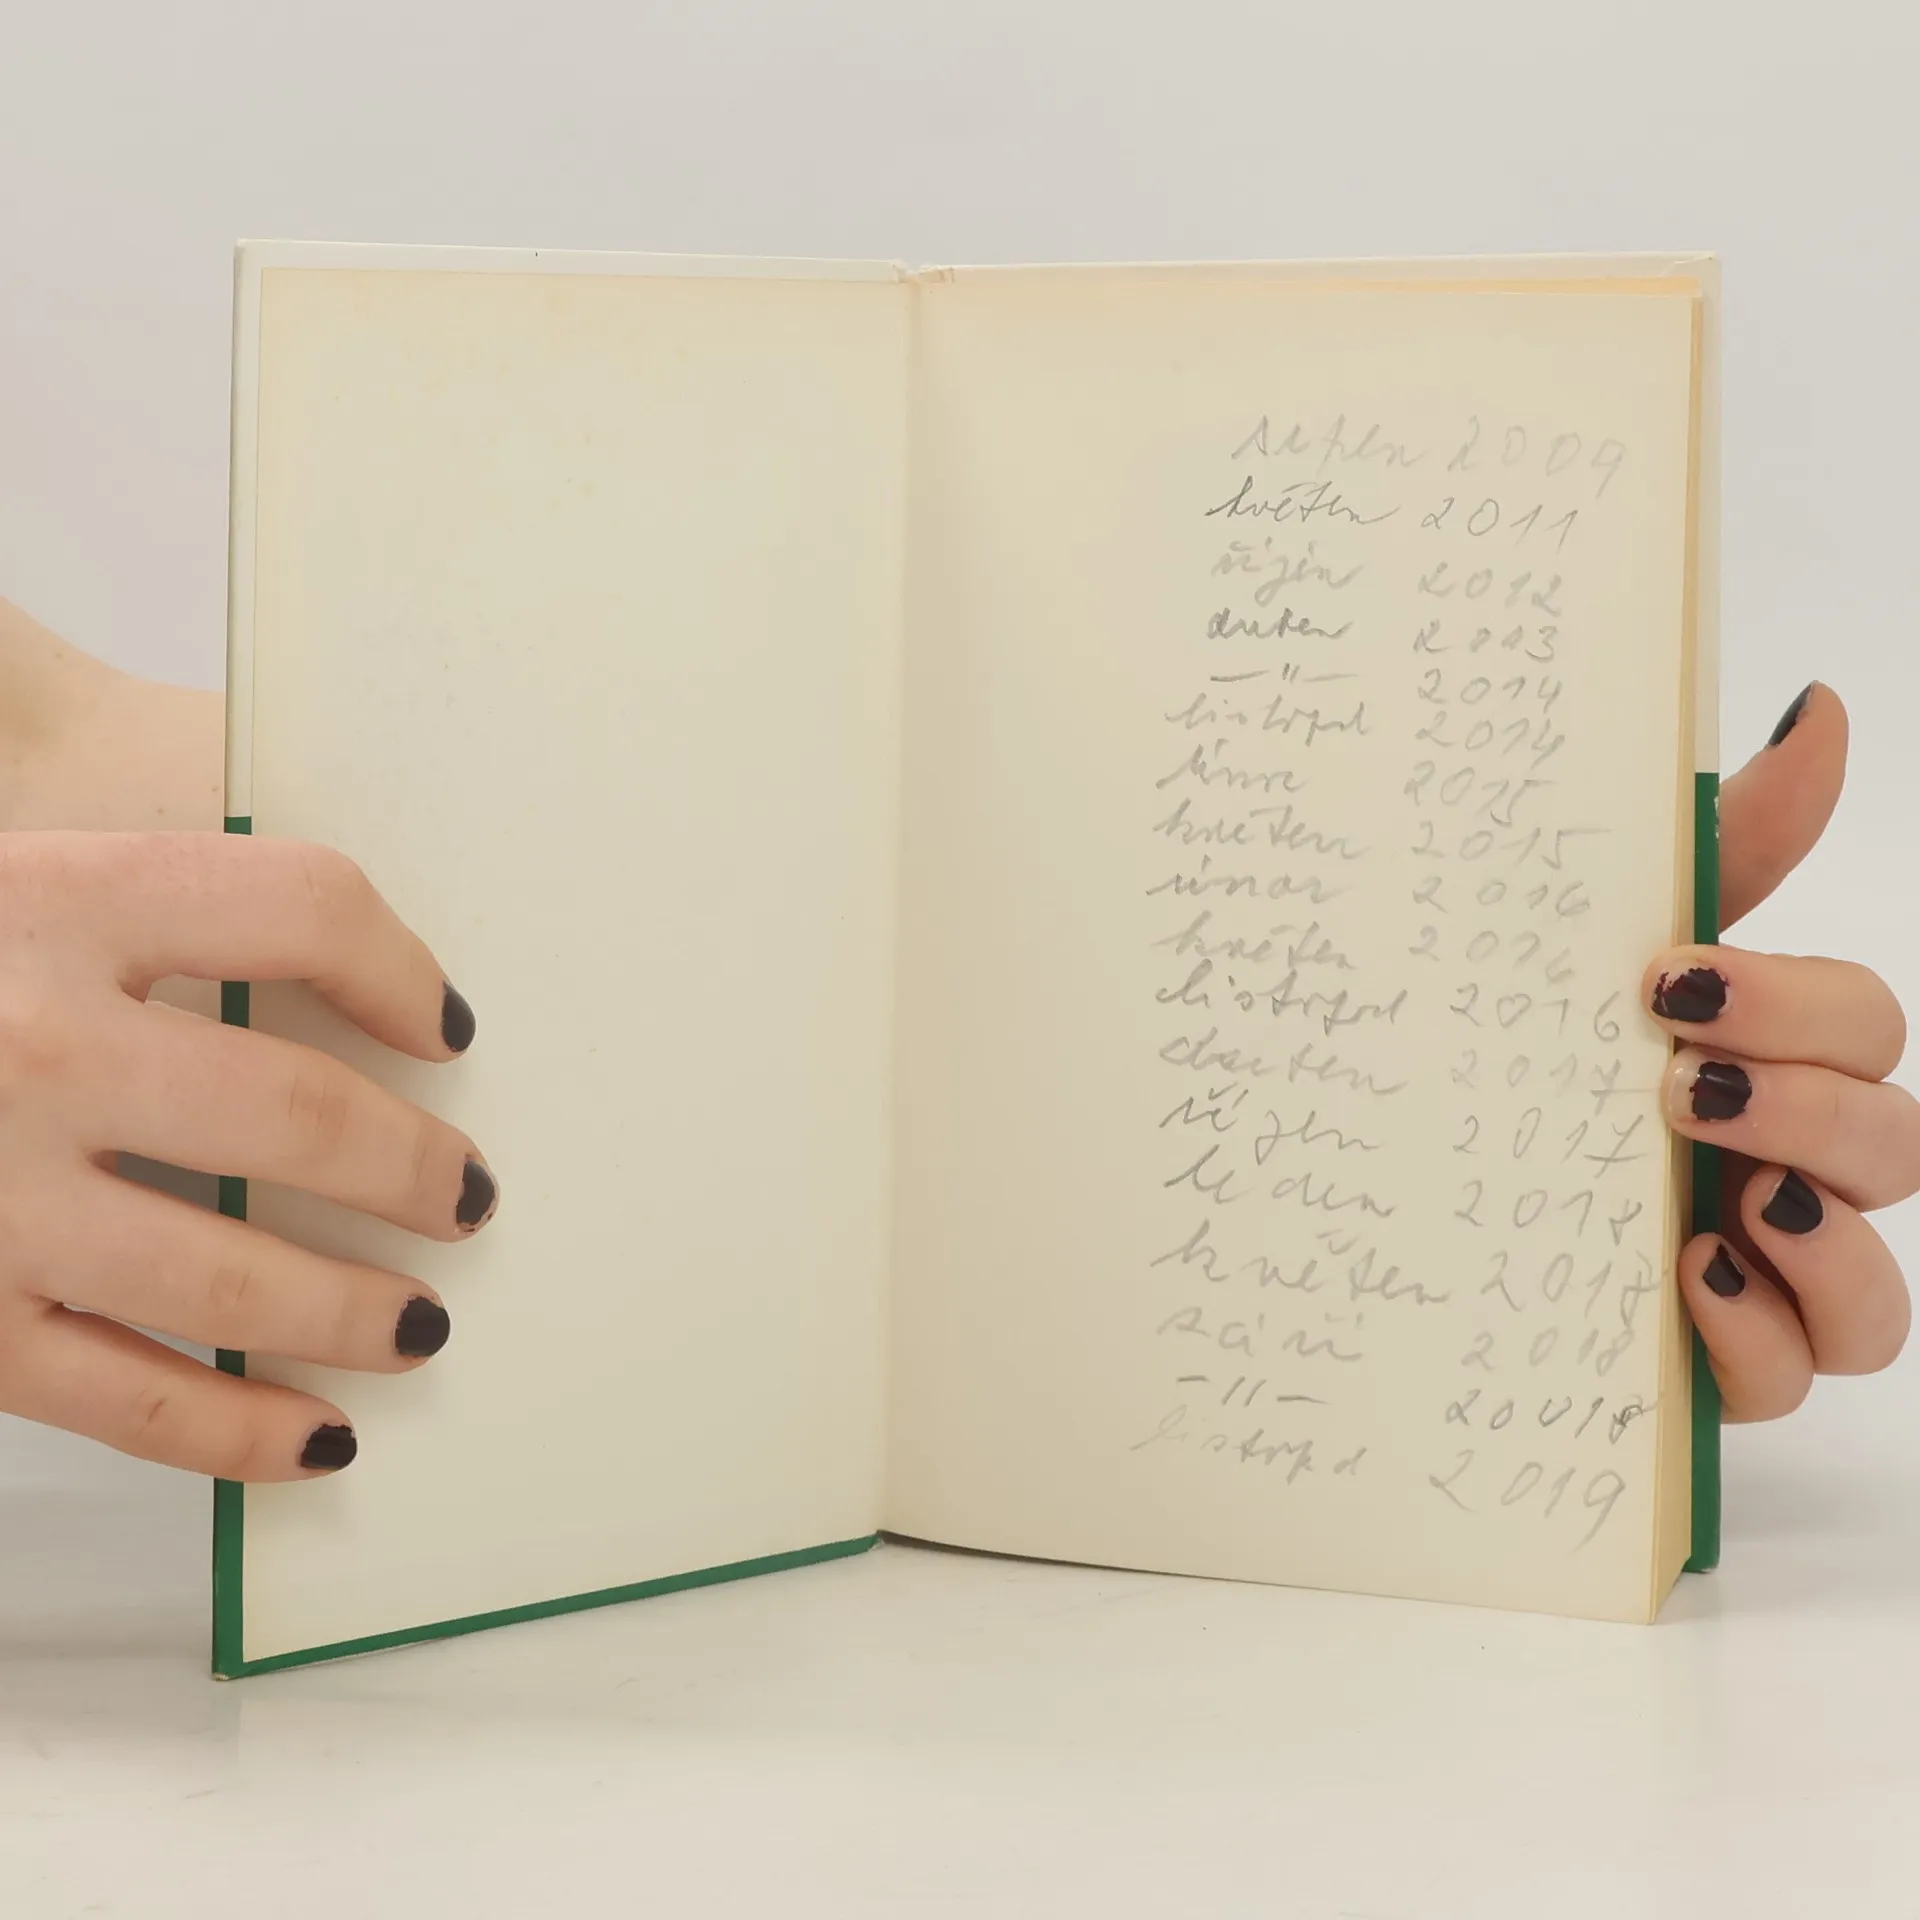 srpen 2009
květen 2011
říjen 2012
duben 2013
—"— 2014
listopad 2014
únor 2015
květen 2015
únor 2016
květen 2016
listopad 2016
duben 2017
říjen 2017
leden 2018
květen 2018
září 2018
-"- 20018
listopad 2019